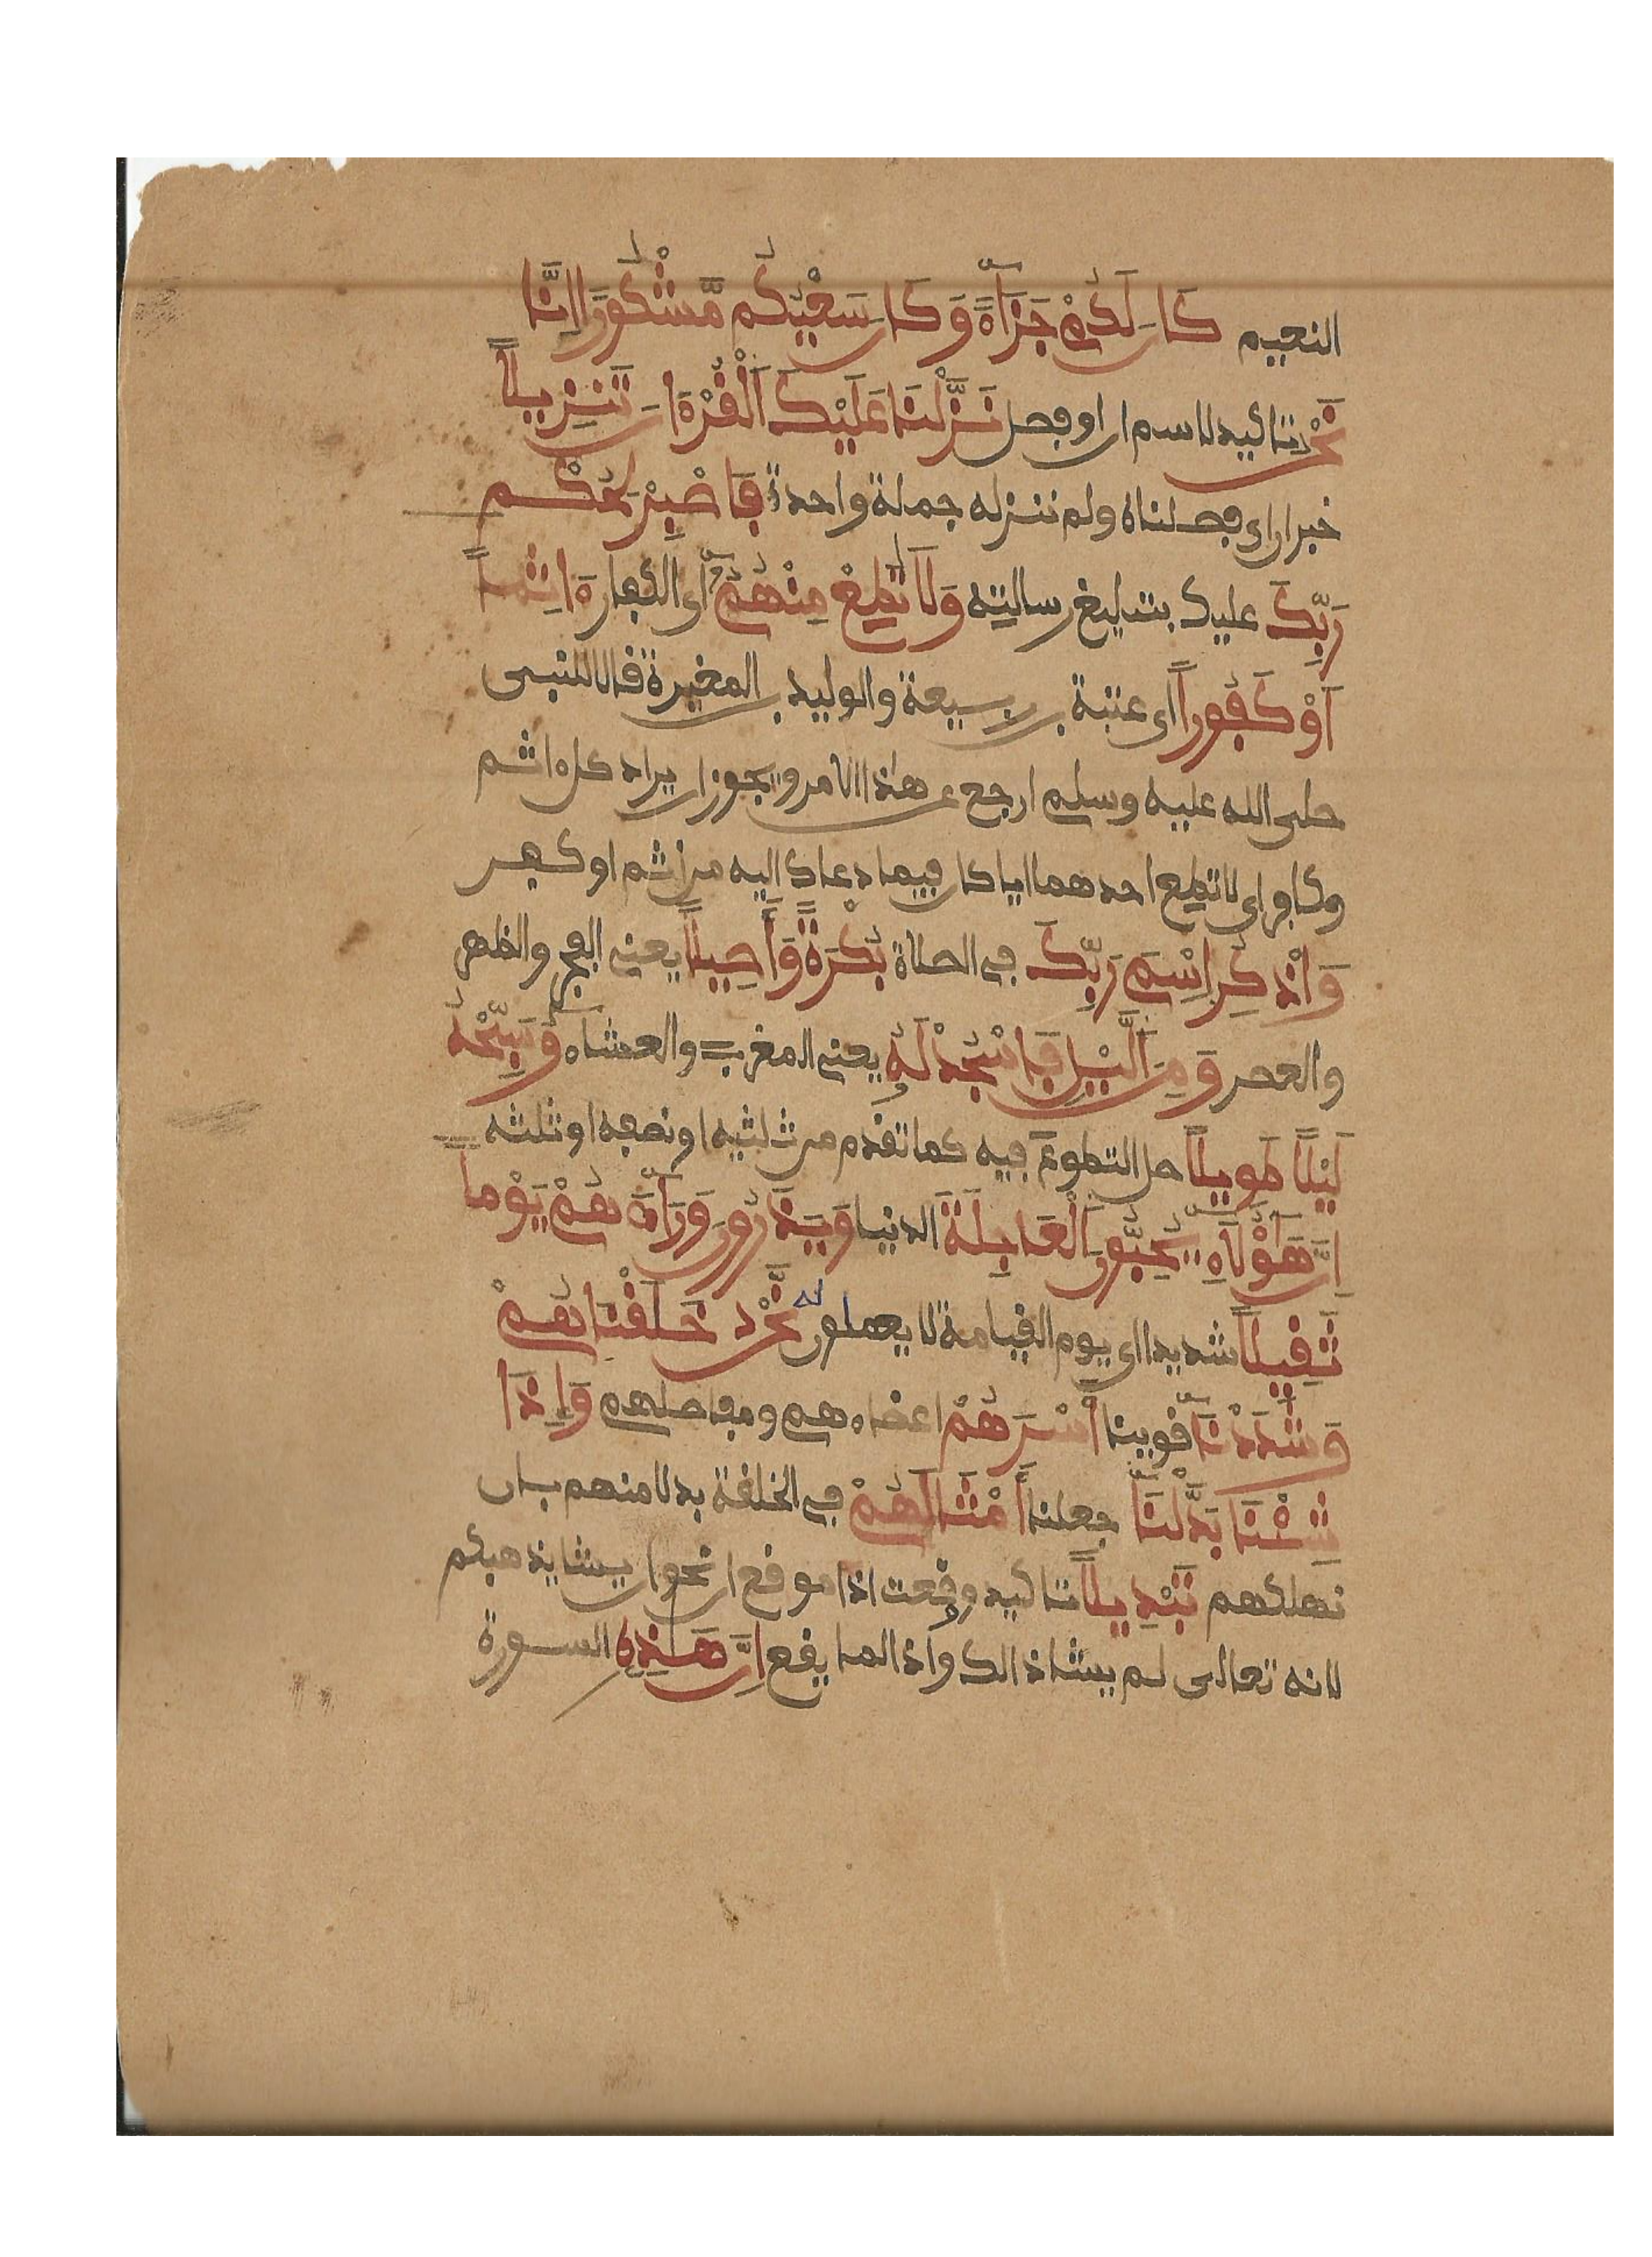 النعيم كَانَ لَكُمْ جَزَآءً وَكَانَ سَعْيُكُم مَّشْكُوراً اِنَّا
نَحْنُ تاكيد لاسم ان او فصل نَزَّلْنَا عَلَيْكَ اَلْقُرْءَانَ تَنزِيلاً
خبر ان اى فصلناه ولم ننزله جملة واحدة فَاصْبِرْ لِحُكْمِ
رَبِّكَ عليك بتبليغ رسالته وَلَا تُطِعْ مِنْهُمُۥٓ أى الكفار ءَاثِماً
اَوْ كَفُوراً اى عتبة بن ربيعة والوليد بن المغيرة قالا للنبى
صلى الله عليه وسلم ارجع عن هذا الامر ويجوز ان يراد كل ءاثم
وكافر اى لا تطع احدهما ايا كان فيما دعاك إليه من اثم او كفر
وَاذْكُرِ اِسْمَ رَبِّكَ فى الصلاة بُكْرَةً وَأَصِيلاً يعنى الفجر والظهر
والعصر وَمِنَ اَلَّيْلِ فَاسْجُدْ لَهُۥ يعنى المغرب والعشاء وَسَبِّحْهُ
لَيْلاً طَوِيلاً صل التطوع فيه كما تقدم من ثلثيه او نصفه او ثلثه
اِنَّ هَٰٓؤُلَآءِ يُحِبُّونَ اَلْعَاجِلَةَ الدنيا وَيَذَرُونَ وَرَآءَهُمْ يَوْماً
ثَقِيلاً شديدا اى يوم القيامة لا يعملون له نَّحْنُ خَلَقْنَٰهُمْ
وَشَدَدْنَآ قوينا أَسْرَهُمْ اعضاءهم ومفاصلهم وَإِذَا
شِئْنَا بَدَّلْنَآ جعلنا أَمْثَٰلَهُمْ فى الخلقة بدلا منهم بان
نهلكهم تَبْدِيلاً تاكيد ووقعت اذا موقع ان نحو ان يشا يذهبكم
لانه تعالى لم يشا ذالك واذا لما يقع اِنَّ هَٰذِهِ السورة